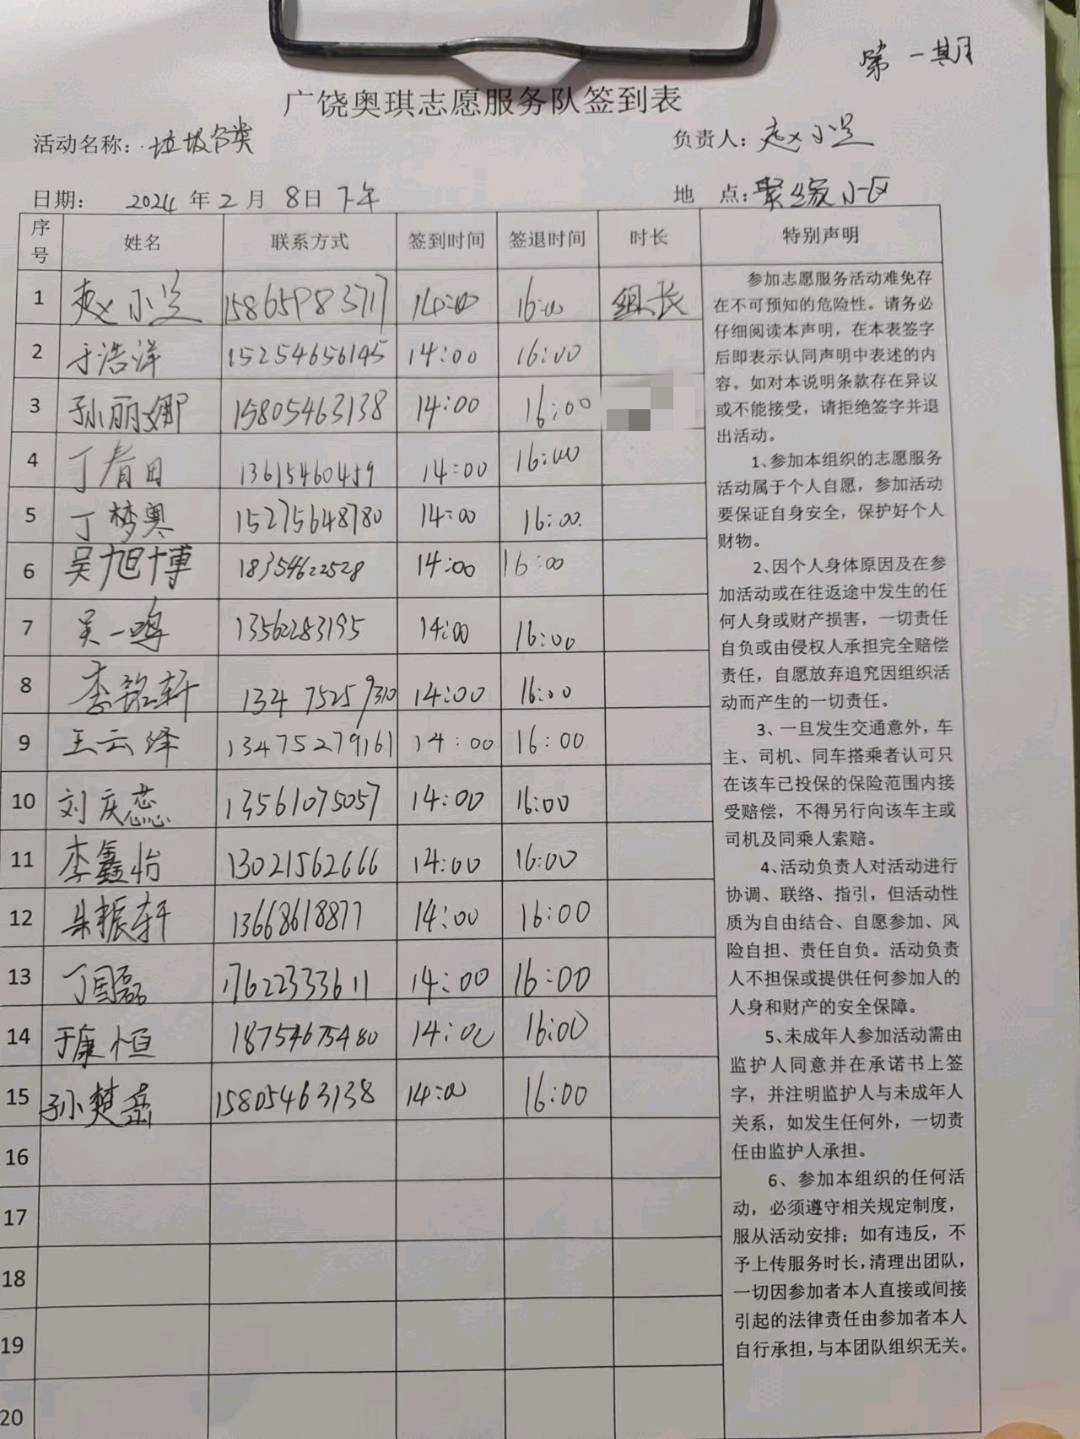 第一期
广饶奥琪志愿服务队签到表
活动名称：垃圾分类 负责人：赵小兰
日期： 2024 年 2 月 8日 下午 地 点：聚缘小区
序号 姓名 联系方式 签到时间 签退时间 时长 特别声明
1 赵小兰 15865983717 14:00 16:00 组长
2 于浩洋 15254656145 14:00 16:00
3 孙丽娜 15805463138 14:00 16:00
4 丁春田 13615460459 14:00 16:00
5 丁梦奥 15275648780 14:00 16:00
6 吴旭博 18354622528 14:00 16:00
7 吴一鸣 13562283195 14:00 16:00
8 李铭轩 13475259310 14:00 16:00
9 王云绎 13475279161 14:00 16:00
10 刘庆蕊 13561075057 14:00 16:00
11 李鑫怡 13021562666 14:00 16:00
12 朱振轩 13668618877 14:00 16:00
13 丁国磊 17622333611 14:00 16:00
14 于康恒 18754675480 14:00 16:00
15 孙楚岳 15805463138 14:00 16:00
16
17
18
19
20
参加志愿服务活动难免存
在不可预知的危险性。请务必
仔细阅读本声明，在本表签字
后即表示认同声明中表述的内
容。如对本说明条款存在异议
或不能接受，请拒绝签字并退
出活动。
1、参加本组织的志愿服务
活动属于个人自愿，参加活动
要保证自身安全，保护好个人
财物。
2、因个人身体原因及在参
加活动或在往返途中发生的任
何人身或财产损害，一切责任
自负或由侵权人承担完全赔偿
责任，自愿放弃追究因组织活
动而产生的一切责任。
3、一旦发生交通意外，车
主、司机、同车搭乘者认可只
在该车已投保的保险范围内接
受赔偿，不得另行向该车主或
司机及同乘人索赔。
4、活动负责人对活动进行
协调、联络、指引，但活动性
质为自由结合、自愿参加、风
险自担、责任自负。活动负责
人不担保或提供任何参加人的
人身和财产的安全保障。
5、未成年人参加活动需由
监护人同意并在承诺书上签
字，并注明监护人与未成年人
关系，如发生任何外，一切责
任由监护人承担。
6、参加本组织的任何活
动，必须遵守相关规定制度，
服从活动安排；如有违反，不
予上传服务时长，清理出团队，
一切因参加者本人直接或间接
引起的法律责任由参加者本人
自行承担，与本团队组织无关。